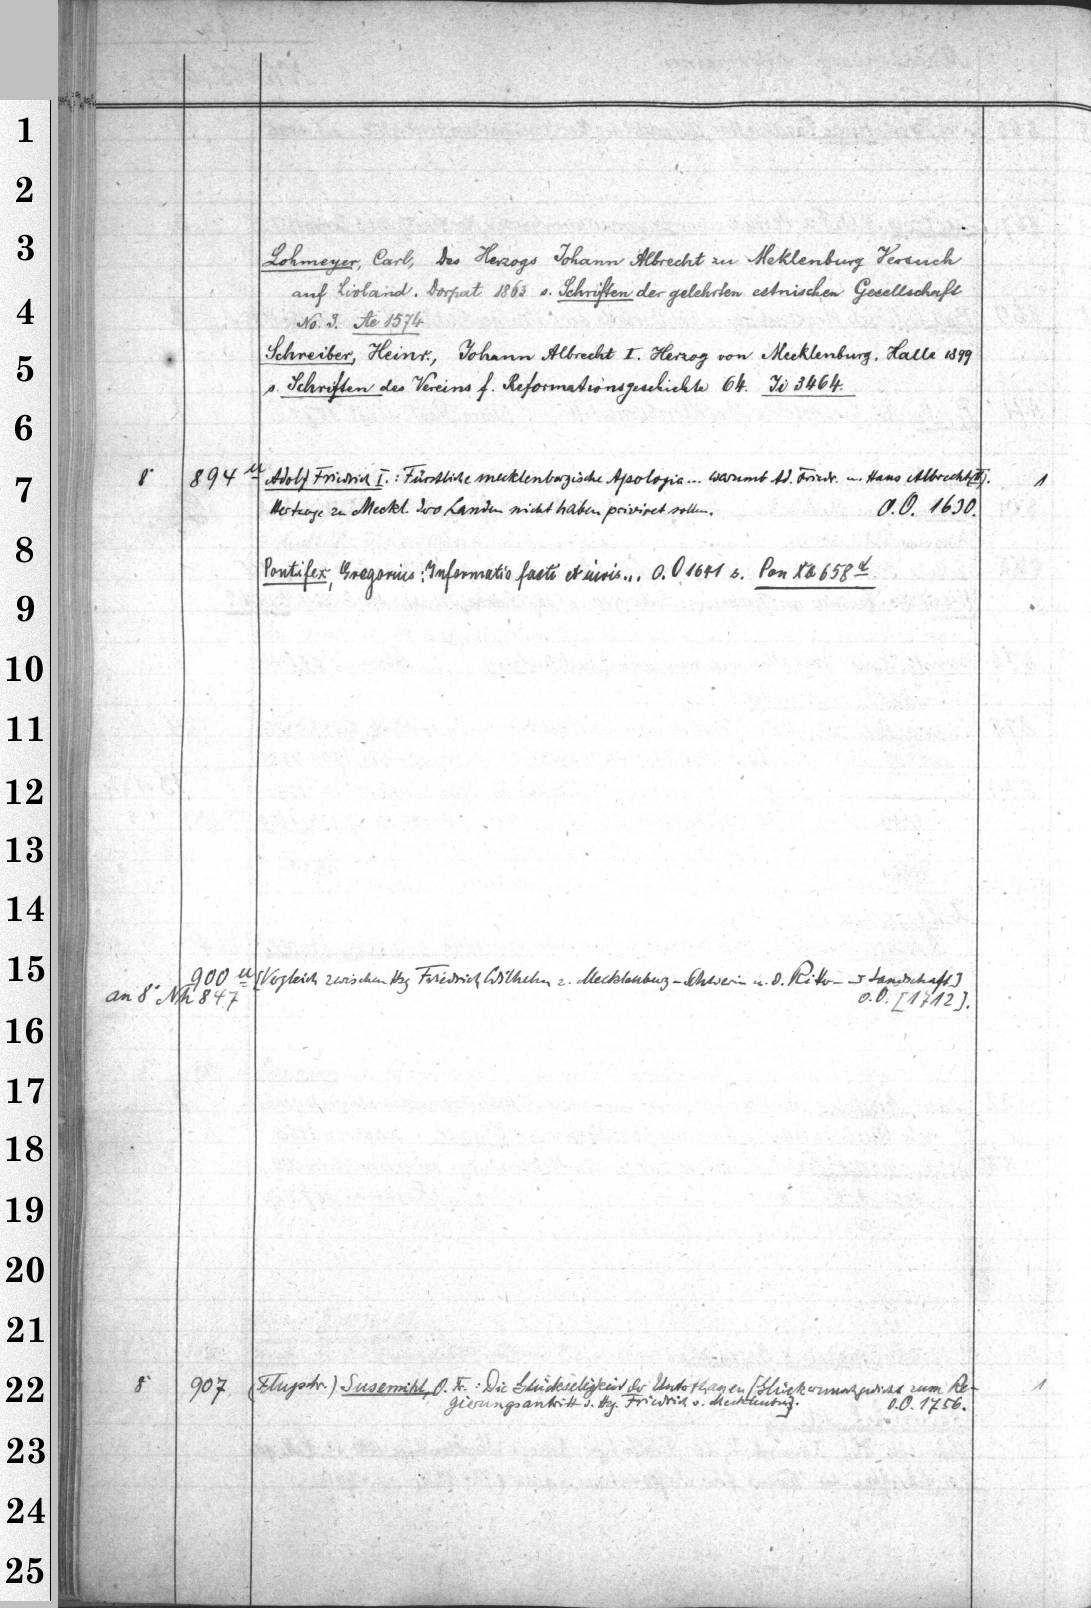 1
2
3
Lohmeyer, Carl, Des Herzogs Johann Albrecht zu Meklenburg Versuch
auf Livland. Dorpat 1863 s. Schriften der gelehrten estnischen Gesellschaft
4
No. 3. Ae 1574
5
Schreiber, Heinr., Johann Albrecht I. Herzog von Mecklenburg. Halle 1899
s. Schriften des Vereins f. Reformationsgeschichte 64. Ji 3464.
6
7
8° 894 u Adolf Friedrich I.: Fürstliche mecklenburgische Apologia... warumb Ad. Friedr. u. Hans Albrecht [II]. 1
Hertzoge zu Meckl. Dero Landen nicht haben priviret sollen. O.O. 1630.
8
Pontifex, Gregorius: Informatio facti et iuris... O.O 1641 s. Pon Xa 658 d
9
10
11
12
13
14
15
900 u [Vergleich zwischen Hzg Friedrich Wilhelm z. Mecklenburg-Schwerin u. d. Ritter- u Landschaft]
an 8° Nh 847 o.O. [1712].
16
17
18
19
20
21
22
8° 907 Susemihl, Die Glückseligkeit der Unterthanen [Glückwunschgedicht zum Re- 1
gierungsantritt d. Hzg. Friedrich v. Mecklenburg]. o.O. 1756.
23
24
25